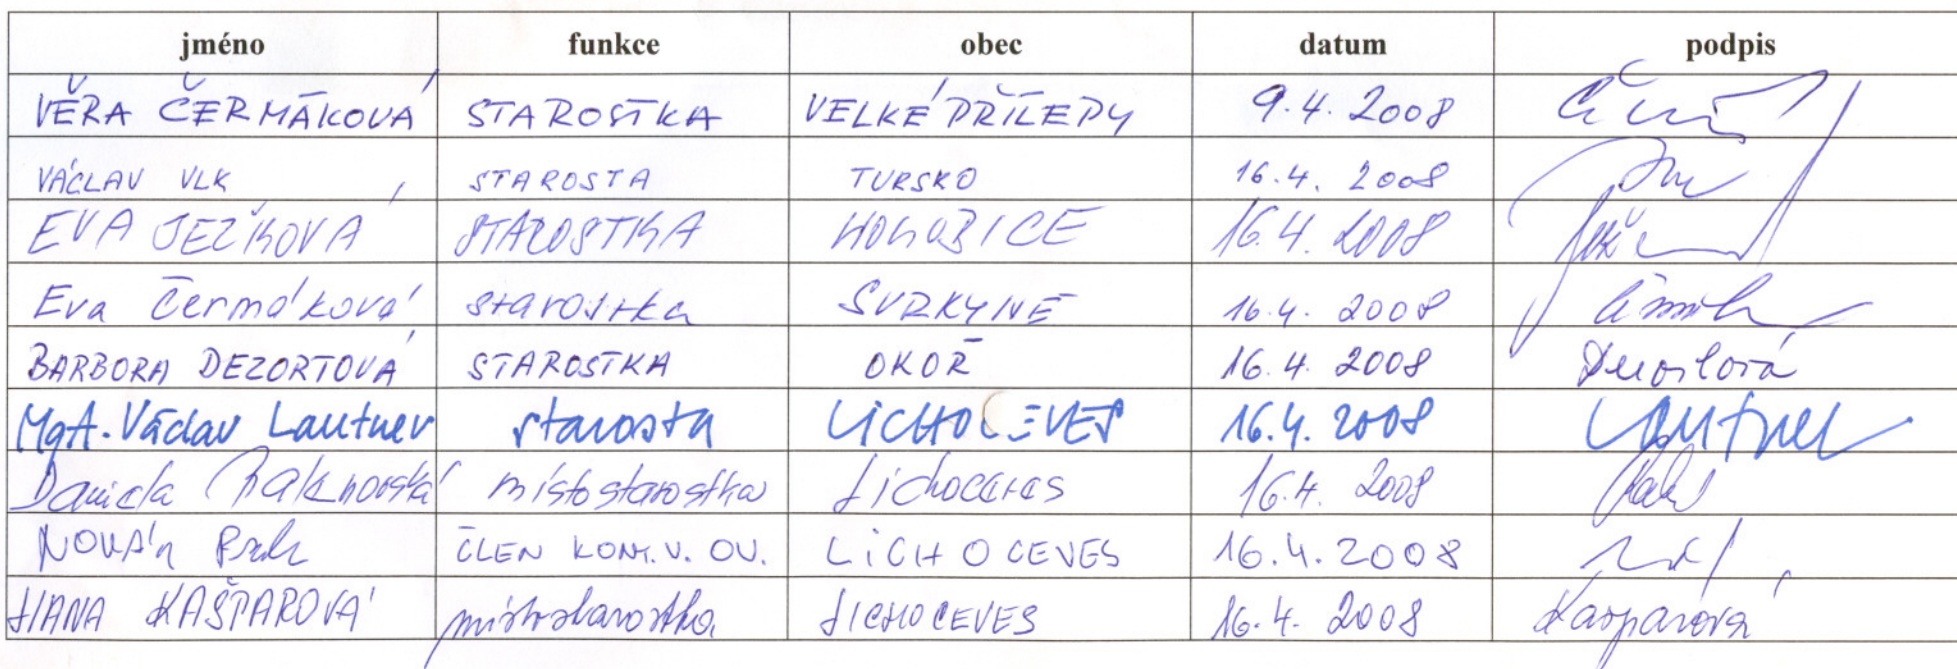 jméno funkce obec datum podpis
VĚRA ČERMÁKOVÁ STAROSTKA VELKÉ PŘÍLEPY 9.4.2008
VÁCLAV VLK STAROSTA TURSKO 16.4. 2008
EVA JEŽKOVÁ STAROSTKA HOLUBICE 16.4. 2008
Eva Čermáková starostka SVRKYNĚ 16.4. 2008
BARBORA DEZORTOVÁ STAROSTKA OKOŘ 16.4. 2008 Dezortová
MgA. Václav Lautner starosta LICHOCEVES 16.4. 2008 Lautner
Daniela místostarostka Lichoceves 16.4. 2008
NOVÁK ČLEN KOM. V. OV. LICHOCEVES 16.4.2008
HANA KAŠPAROVÁ místostarostka LICHOCEVES 16.4. 2008 Kašparová